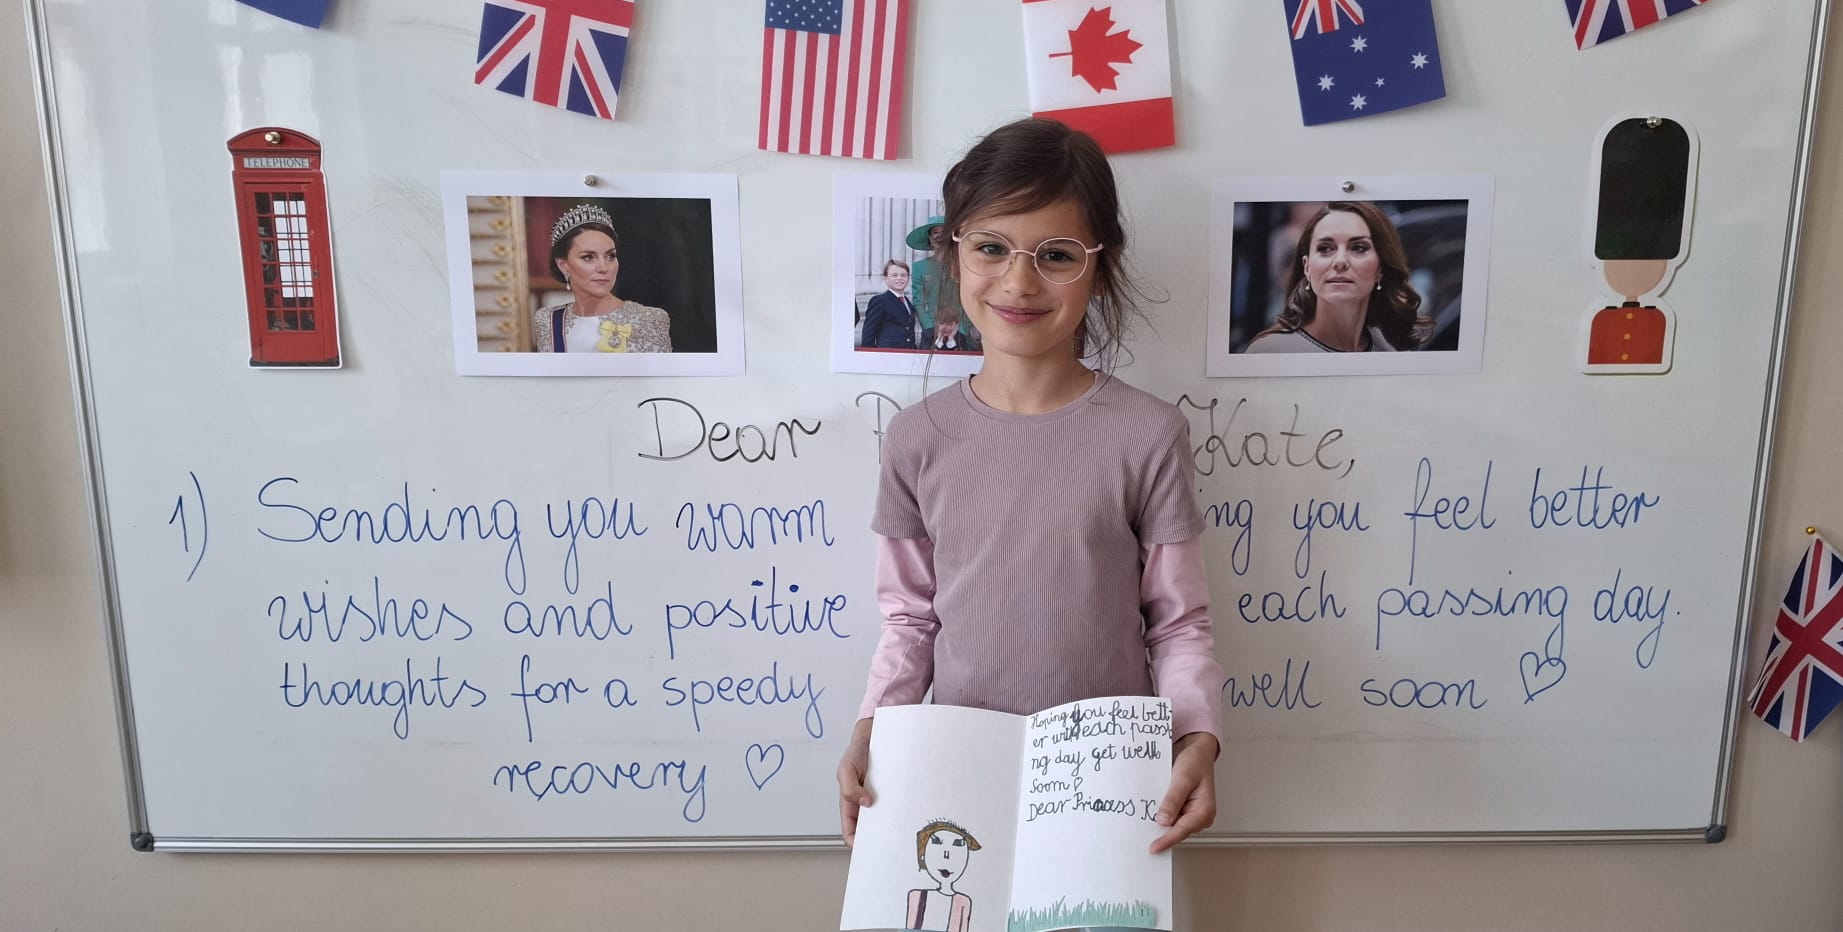 TELEPHONE
Dear Kate,
1) Sending you warm
wishes and positive
thoughts for a speedy
recovery ♡
ng you feel better
each passing day.
well soon ♡
Hoping you feel bett
er with each passi
ng day get well
soon ♡
Dear Princess Ka